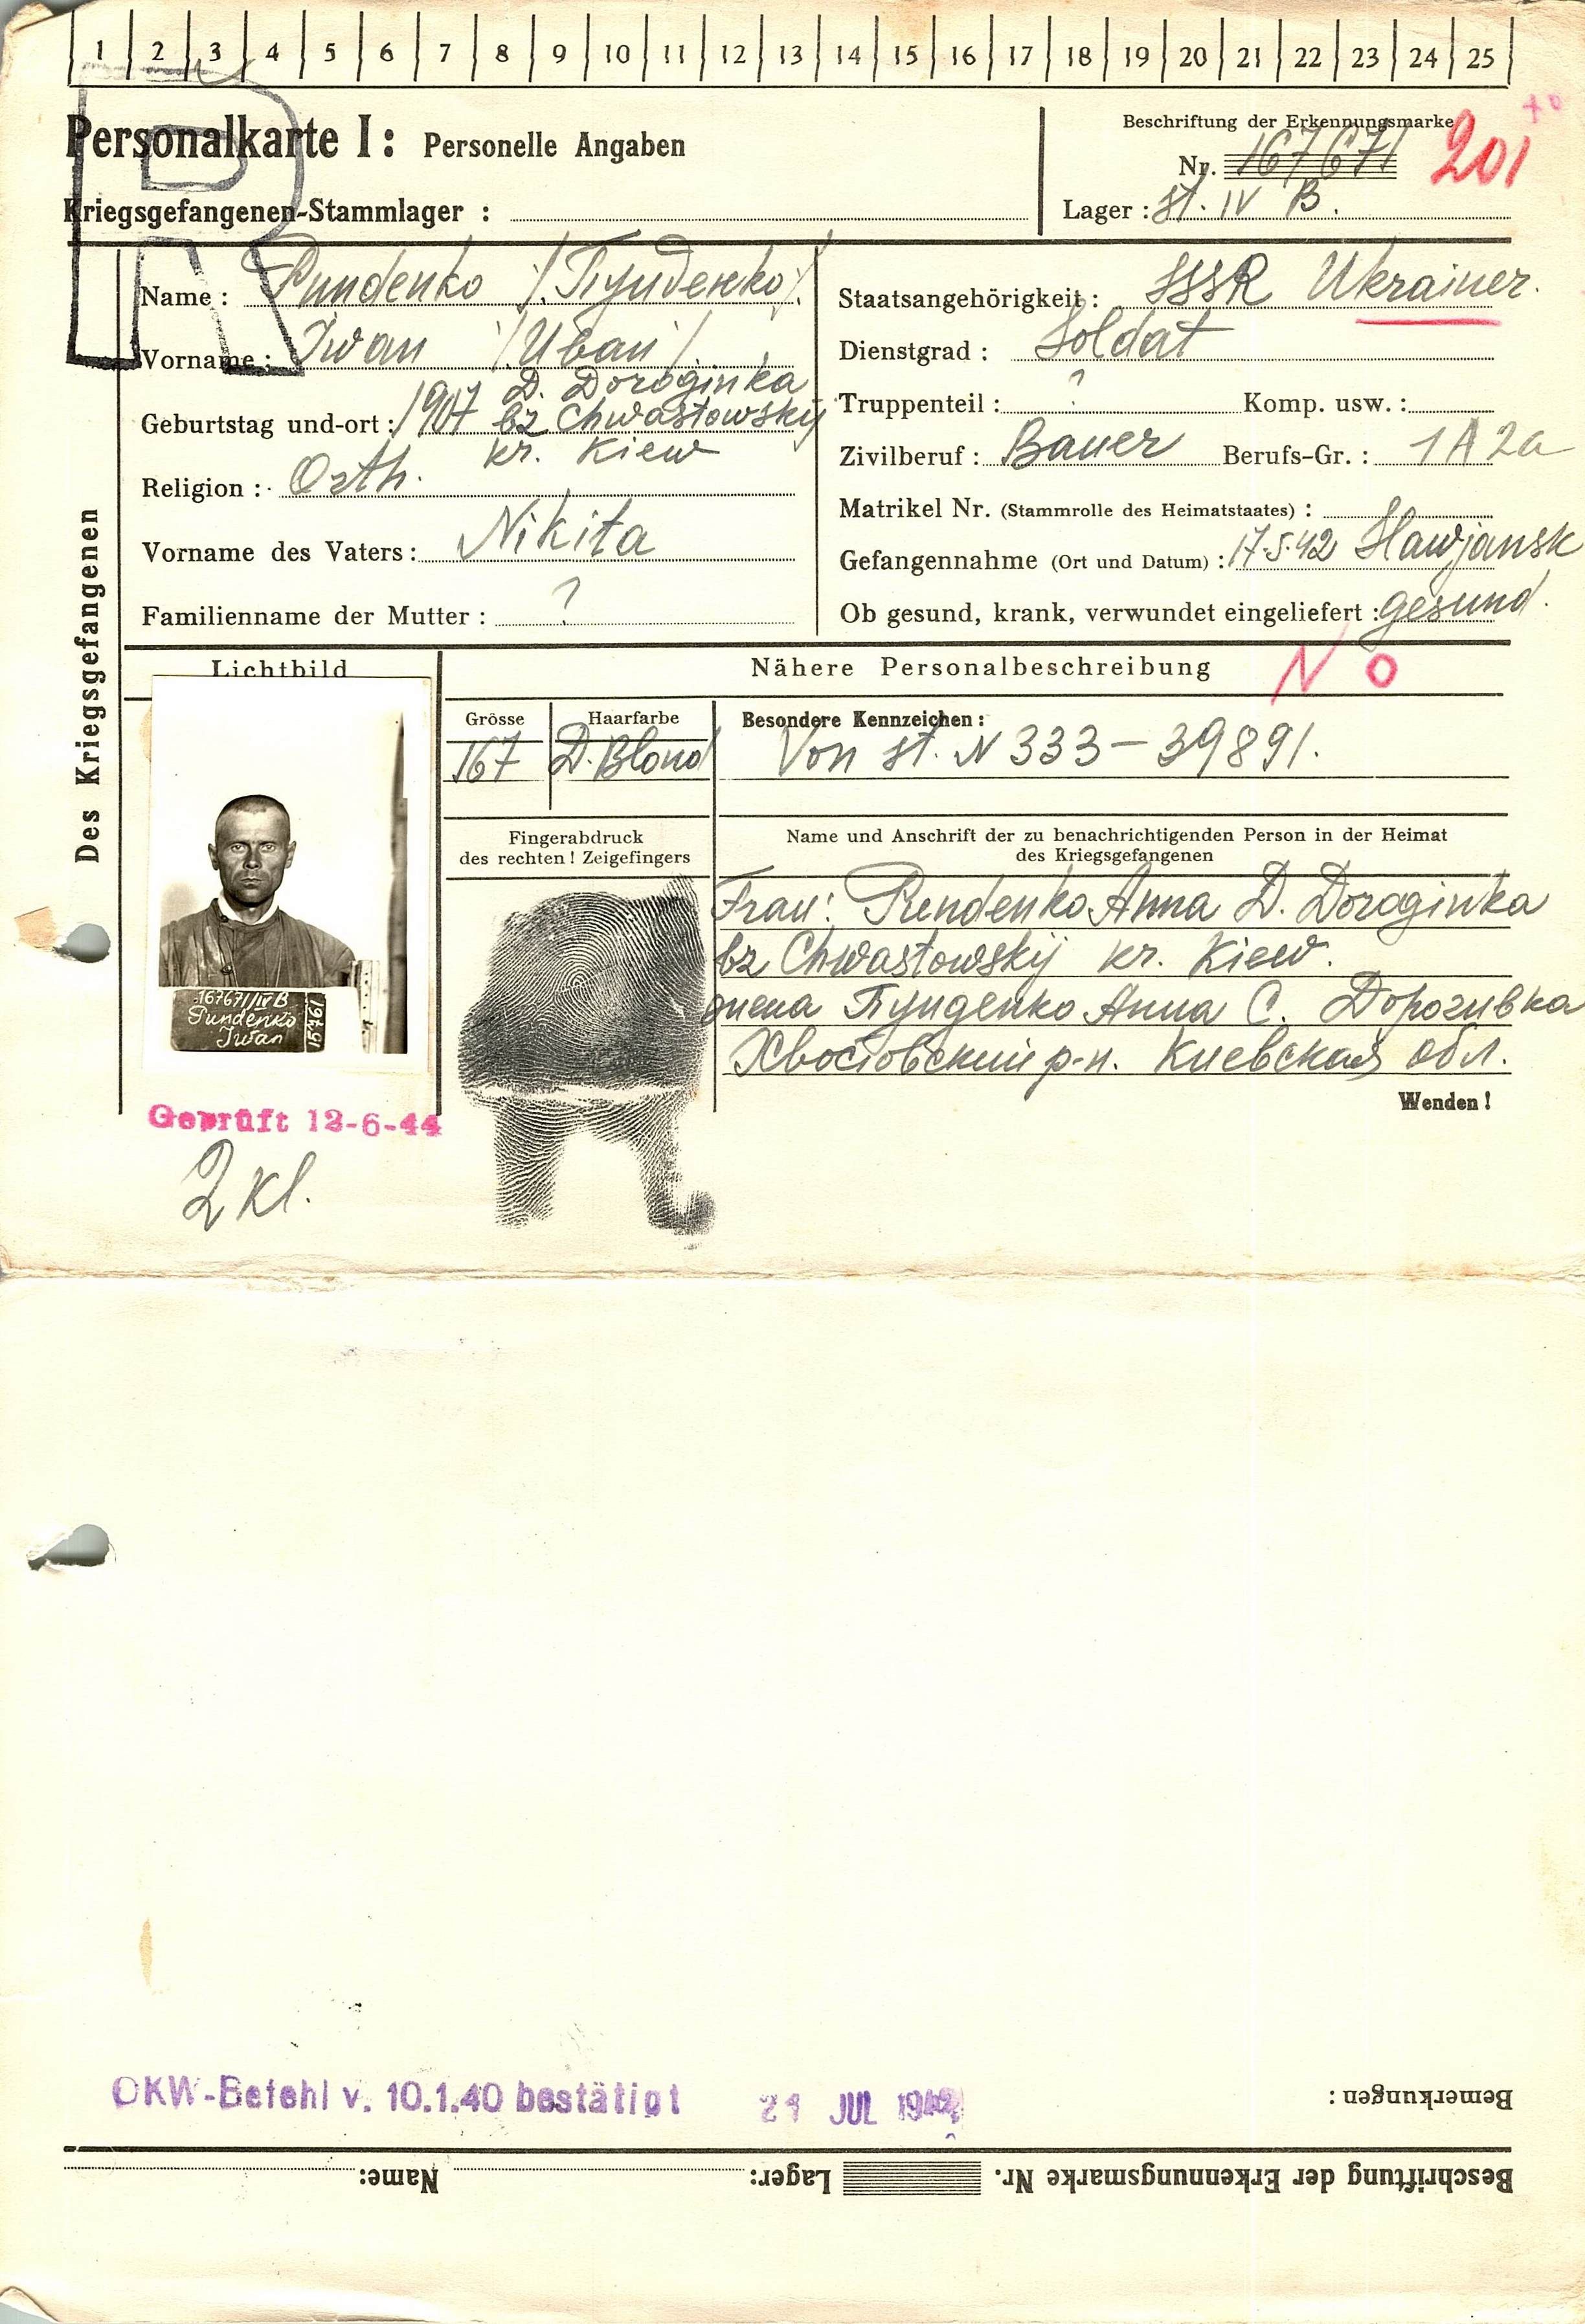 1 2 3 4 5 6 7 8 9 10 11 12 13 14 15 16 17 18 19 20 21 22 23 24 25
R
Personalkarte I: Personelle Angaben
Kriegsgefangenen-Stammlager :
Beschriftung der Erkennungsmarke
Nr. 167671
201
Lager : St. IV B.
Des Kriegsgefangenen
Name : Pundenko /Пунденко/.
Vorname : Iwan /Иван/.
Geburtstag und-ort : 1907 D. Doroginka
bz Chwastowskij
kr. Kiew
Religion : Orth.
Vorname des Vaters : Nikita
Familienname der Mutter : ?
Staatsangehörigkeit : SSSR Ukrainer.
Dienstgrad : Soldat
Truppenteil : ? Komp. usw. :
Zivilberuf : Bauer Berufs-Gr. : 1A2a
Matrikel Nr. (Stammrolle des Heimatstaates) :
Gefangennahme (Ort und Datum) : 17.5.42 Slawjansk
Ob gesund, krank, verwundet eingeliefert : gesund.
Lichtbild
Nähere Personalbeschreibung
N O
Grösse
167
Haarfarbe
D. Blond
Besondere Kennzeichen :
Von St. N 333 – 39891.
Fingerabdruck
des rechten ! Zeigefingers
Name und Anschrift der zu benachrichtigenden Person in der Heimat
des Kriegsgefangenen
Frau: Pundenko Anna D. Doroginka
bz Chwastowskij kr. Kiew.
жена Пунденко Анна С. Дорогинка
Хвостовский р-н. Киевская обл.
Wenden !
167671/IV B
Pundenko
Iwan
15761
Geprüft 12-6-44
2 Kl.
OKW-Befehl v. 10.1.40 bestätigt
21 JUL 1942
Bemerkungen :
Beschriftung der Erkennungsmarke Nr. Lager: Name: